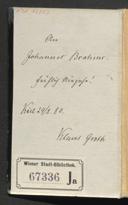 An
Johannes Brahms.
Kiel 24/2. 80.
Klaus Groth
Wiener Stadt-Bibliothek.
67336 Ja